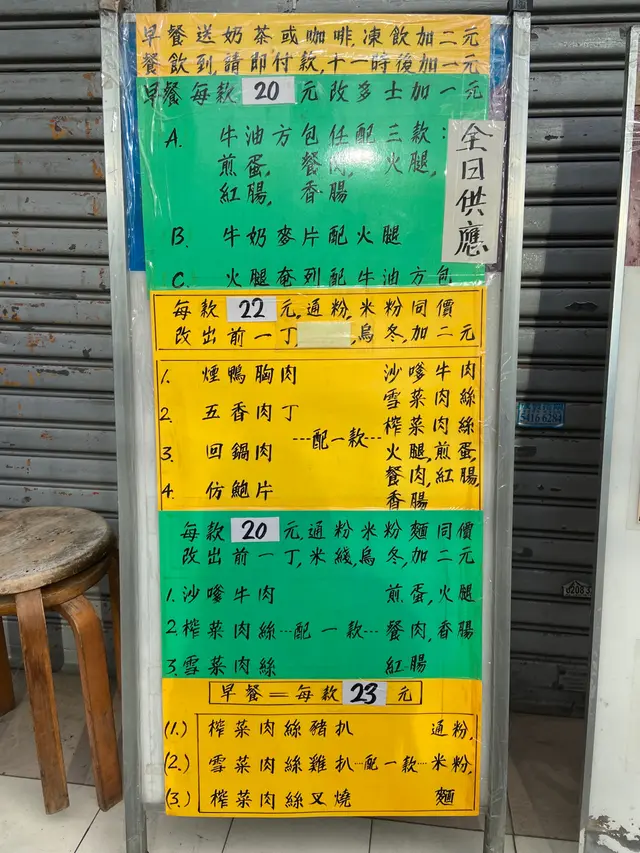 早餐送奶茶或咖啡,凍飲加二元
餐飲到,請即付款,十一時後加一元
早餐每款 20 元改多士加一元
全日供應
A. 牛油方包任配三款:
煎蛋, 餐肉, 火腿,
紅腸, 香腸
B. 牛奶麥片配火腿
C. 火腿奄列配牛油方包
每款 22 元,通粉,米粉同價
改出前一丁 ,烏冬,加二元
1. 煙鴨胸肉
2. 五香肉丁
3. 回鍋肉
4. 仿鮑片
---配一款---
沙嗲牛肉
雪菜肉絲
榨菜肉絲
火腿,煎蛋,
餐肉,紅腸,
香腸
每款 20 元,通粉米粉麵同價
改出前一丁,米綫,烏冬,加二元
1.沙嗲牛肉 煎蛋,火腿
2.榨菜肉絲---配一款---餐肉,香腸
3.雪菜肉絲 紅腸
早餐=每款 23 元
(1.) 榨菜肉絲豬扒 通粉,
(2.) 雪菜肉絲雞扒---配一款---米粉,
(3.) 榨菜肉絲叉燒 麵